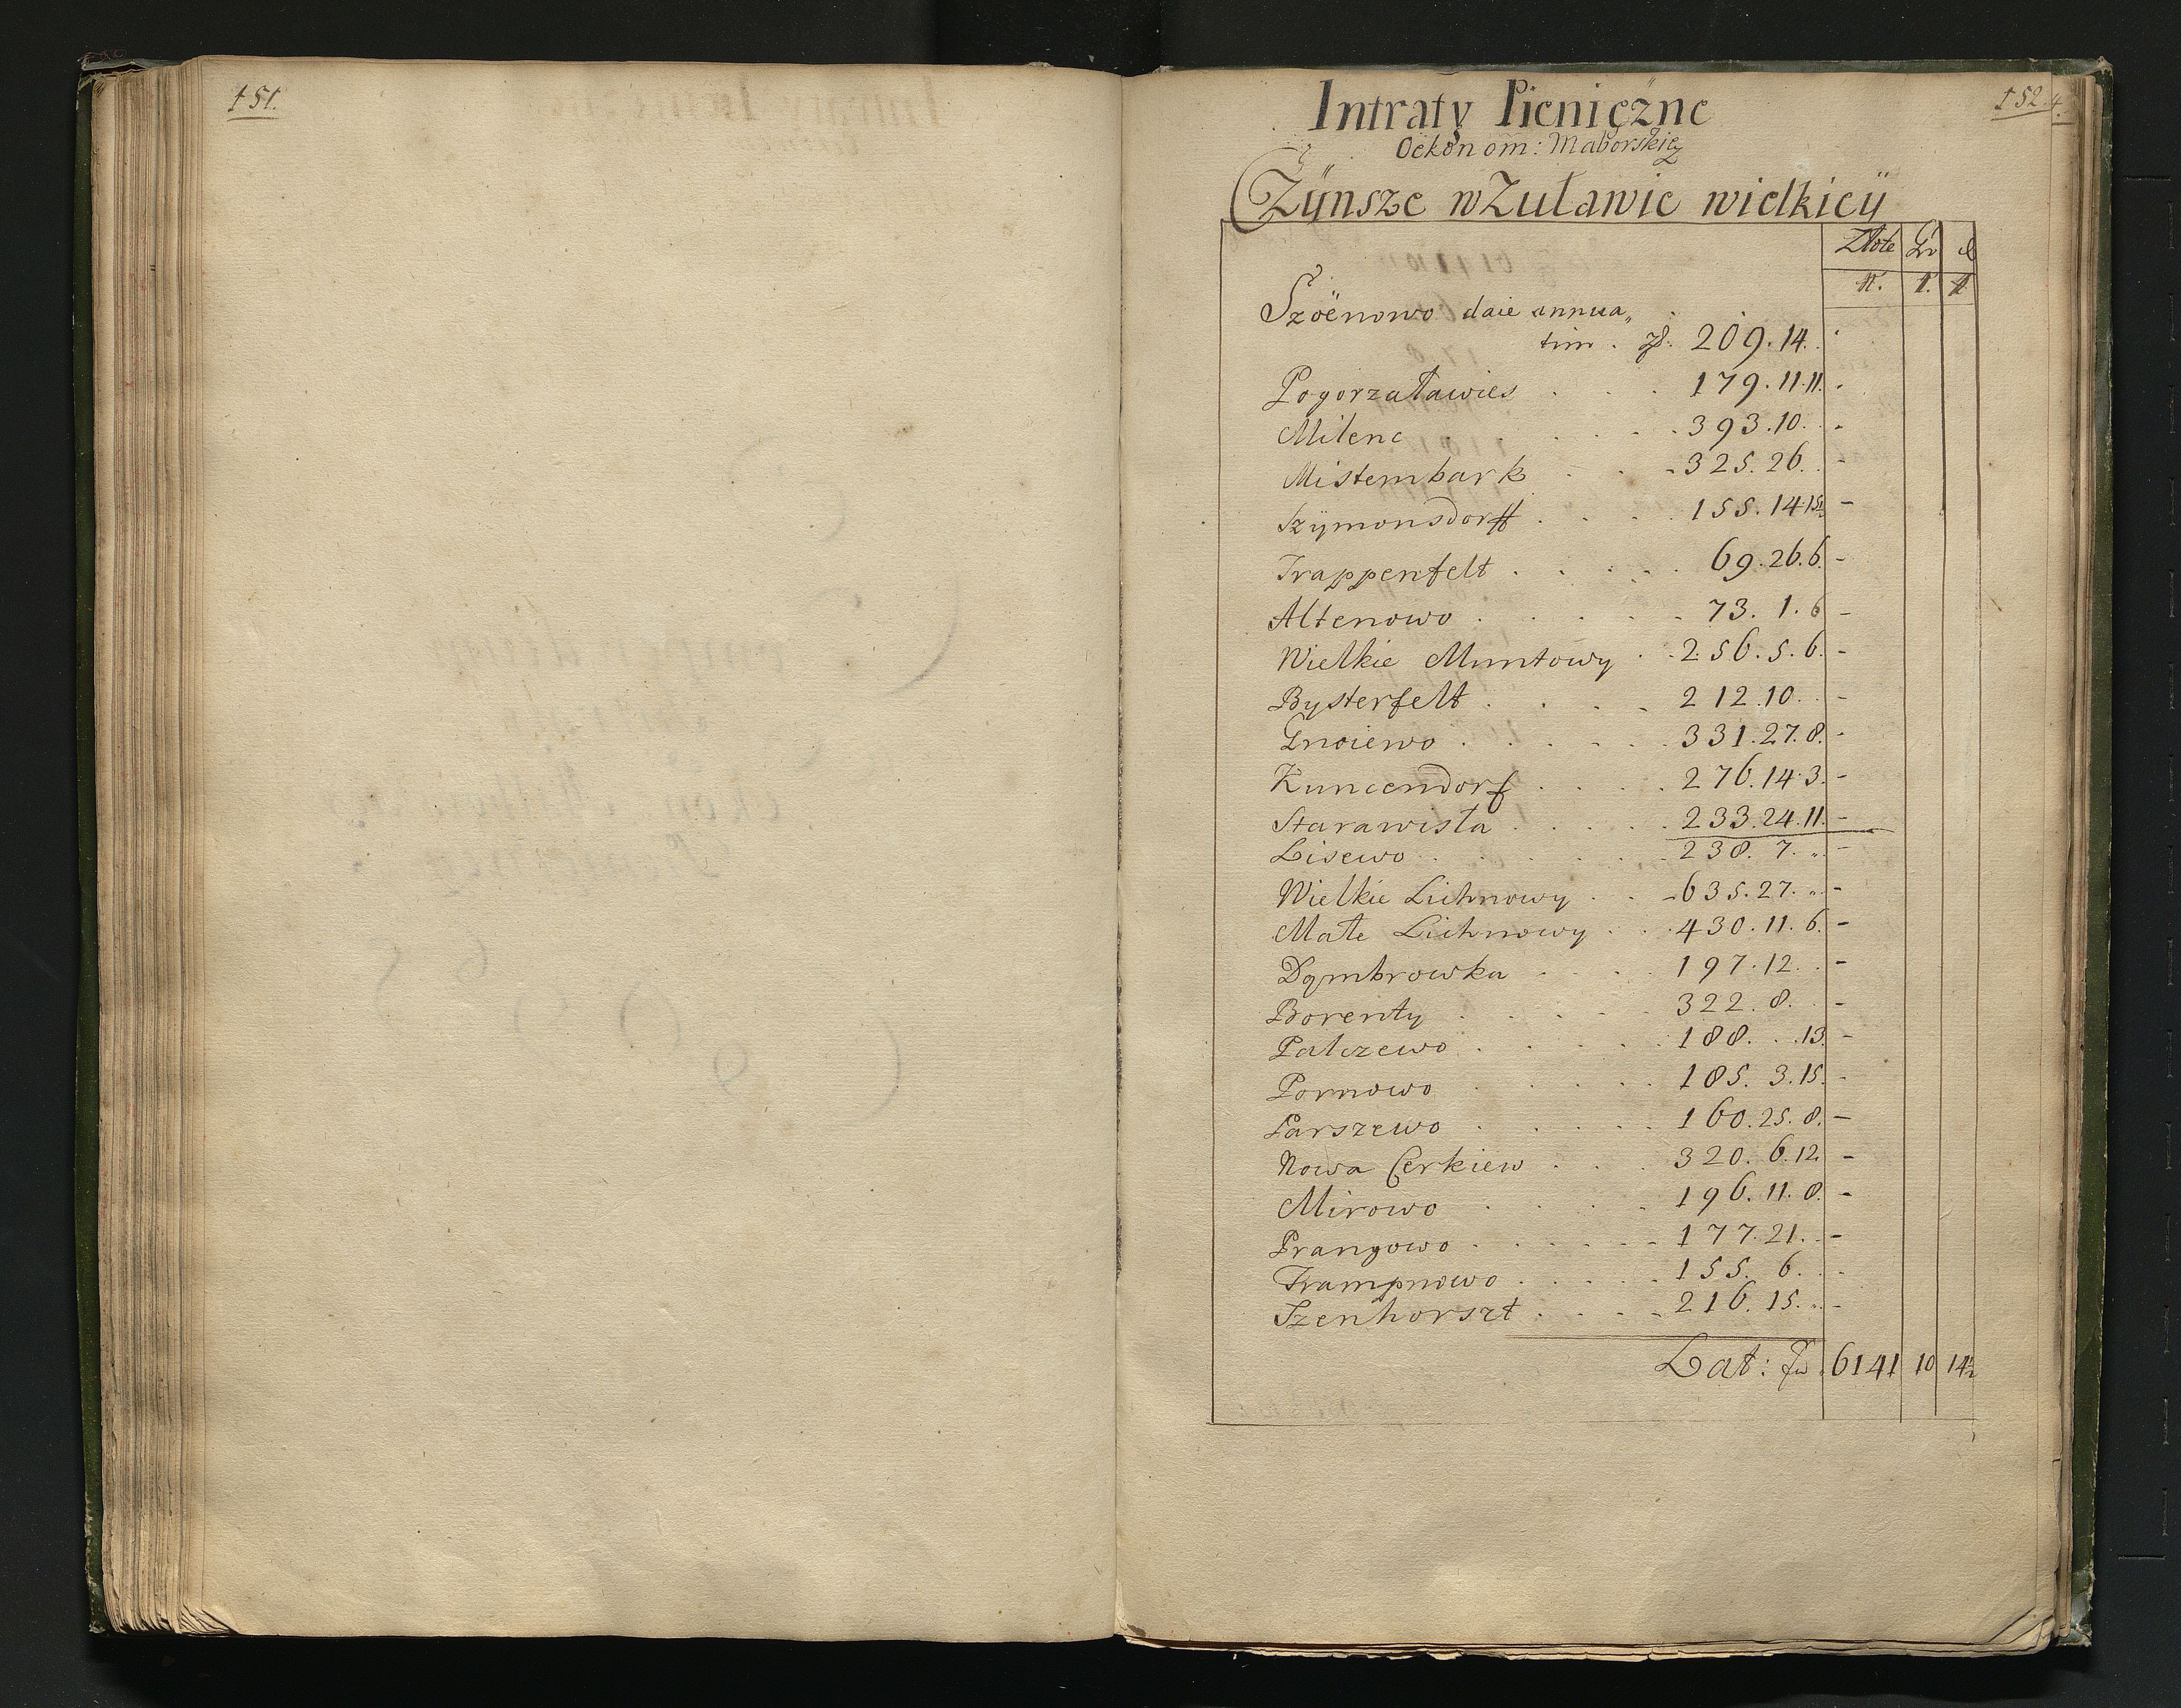 151.
152.
4.
Intraty Pieniężne
Oekonom: Malborskiey
Czÿnsze w Zuławie wielkieÿ
Złote Gr d
Szöenowo daie annua„
tim . zł. 209.14.
Pogorzaławies . . . 179.11.11.
Milenc . . . . 393.10.
Mistembark . . . 325.26.
Szÿmonsdorff . . . 155.14.15½
Trappenfelt . . . . 69.26.6.
Altenowo . . . . 73. 1. 6
Wielkie Muntowy . . 256.5.6. -
Bysterfelt . . . . 212.10. . -
Gnoiewo . . . . 331.27.8. -
Kuncendorf . . . . 276.14.3. -
Starawisła . . . . 233.24.11. -
Lisewo . . . . 238. 7. „ -
Wielkie Lichnowy . . 635.27. „ -
Małe Lichnowy . . . 430.11.6. -
Dąmbrowka . . . 197.12. . -
Borenty . . . . 322.8. . -
Palczewo . . . . 188. . .13. -
Pornowo . . . . 185. 3.15. -
Parszewo . . . . 160.25.8. -
Nowa Cerkiew . . . 320. 6.12 -
Mirowo . . . . 196.11.8. -
Prangowo . . . . 177.21. . -
Trampnowo . . . . 155. 6. . -
Szenhorszt . . . . 216.15. „ -
Lat: 6141 10 14½